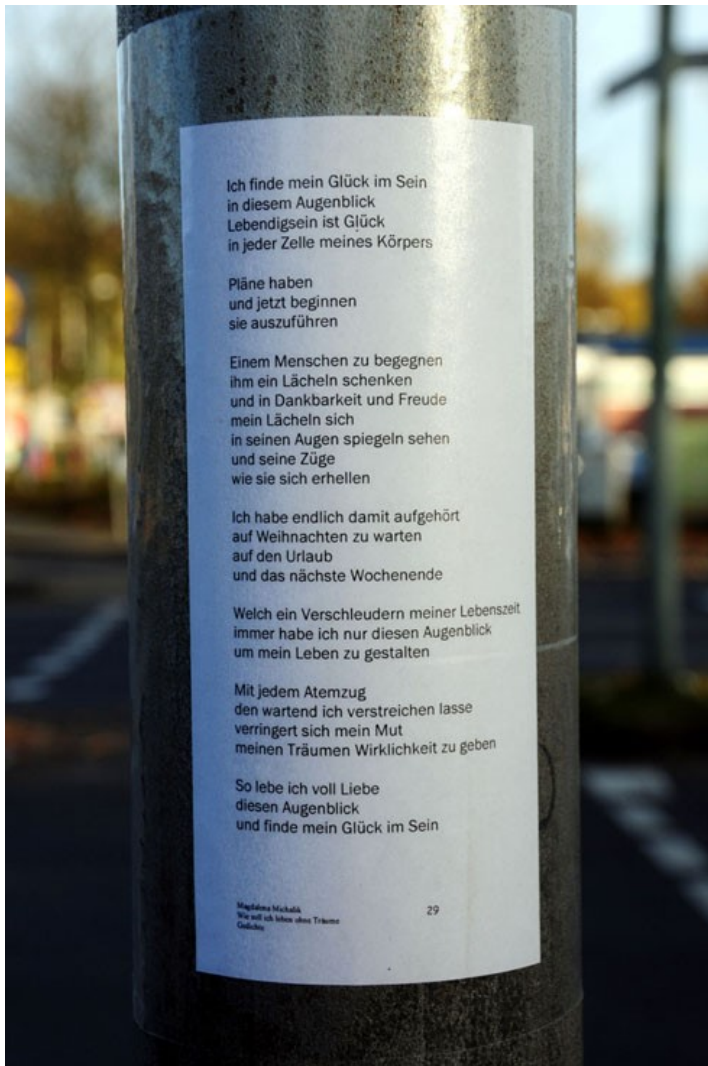 Ich finde mein Glück im Sein
in diesem Augenblick
Lebendigsein ist Glück
in jeder Zelle meines Körpers
Pläne haben
und jetzt beginnen
sie auszuführen
Einem Menschen zu begegnen
ihm ein Lächeln schenken
und in Dankbarkeit und Freude
mein Lächeln sich
in seinen Augen spiegeln sehen
und seine Züge
wie sie sich erhellen
Ich habe endlich damit aufgehört
auf Weihnachten zu warten
auf den Urlaub
und das nächste Wochenende
Welch ein Verschleudern meiner Lebenszeit
immer habe ich nur diesen Augenblick
um mein Leben zu gestalten
Mit jedem Atemzug
den wartend ich verstreichen lasse
verringert sich mein Mut
meinen Träumen Wirklichkeit zu geben
So lebe ich voll Liebe
diesen Augenblick
und finde mein Glück im Sein
Magdalena Michalik
Wie soll ich leben ohne Träume
Gedichte
29